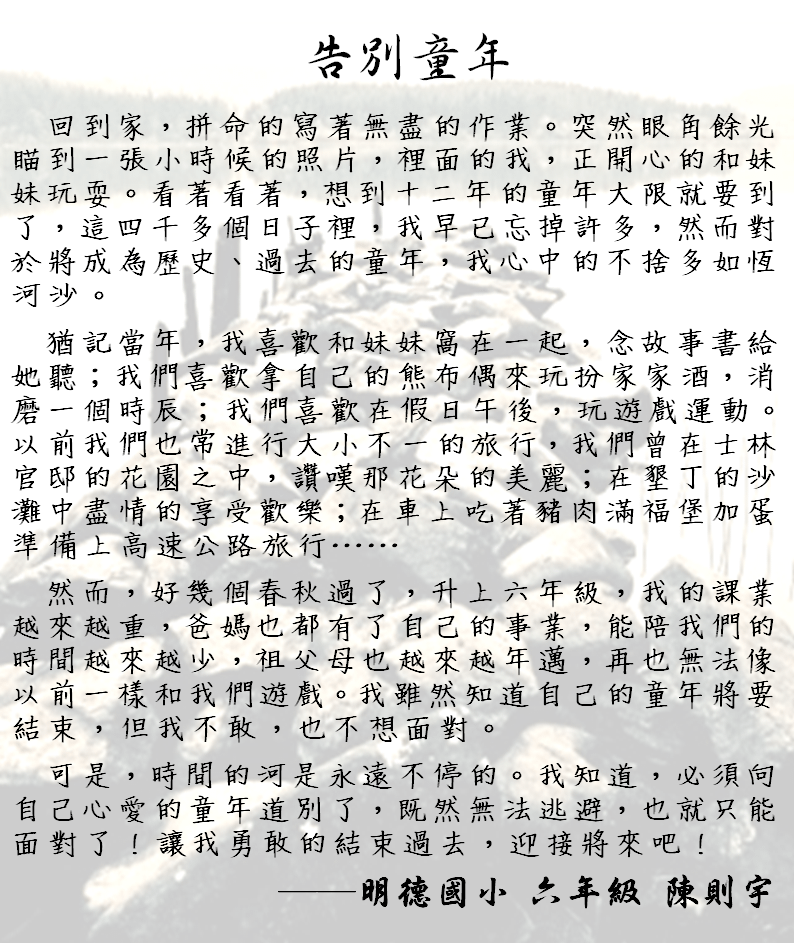 告別童年
回到家，拼命的寫著無盡的作業。突然眼角餘光
瞄到一張小時候的照片，裡面的我，正開心的和妹
妹玩耍。看著看著，想到十二年的童年大限就要到
了，這四千多個日子裡，我早已忘掉許多，然而對
於將成為歷史、過去的童年，我心中的不捨多如恆
河沙。
猶記當年，我喜歡和妹妹窩在一起，念故事書給
她聽；我們喜歡拿自己的熊布偶來玩扮家家酒，消
磨一個時辰；我們喜歡在假日午後，玩遊戲運動。
以前我們也常進行大小不一的旅行，我們曾在士林
官邸的花園之中，讚嘆那花朵的美麗；在墾丁的沙
灘中盡情的享受歡樂；在車上吃著豬肉滿福堡加蛋
準備上高速公路旅行……
然而，好幾個春秋過了，升上六年級，我的課業
越來越重，爸媽也都有了自己的事業，能陪我們的
時間越來越少，祖父母也越來越年邁，再也無法像
以前一樣和我們遊戲。我雖然知道自己的童年將要
結束，但我不敢，也不想面對。
可是，時間的河是永遠不停的。我知道，必須向
自己心愛的童年道別了，既然無法逃避，也就只能
面對了！讓我勇敢的結束過去，迎接將來吧！
——明德國小 六年級 陳則宇